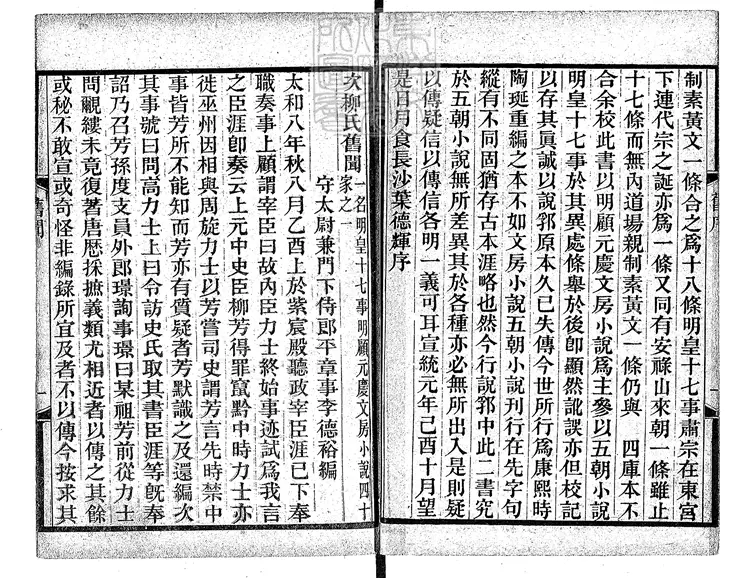 制素黃文一條合之爲十八條明皇十七事肅宗在東宮
下連代宗之誕亦爲一條又同有安祿山來朝一條雖止
十七條而無內道場親制素黃文一條仍與　四庫本不
合余校此書以明顧元慶文房小說爲主參以五朝小說
明皇十七事於其異處條舉於後卽顯然訛誤亦但校記
以存其眞誠以說郛原本久已失傳今世所行爲康熙時
陶珽重編之本不如文房小說五朝小說刊行在先字句
縱有不同固猶存古本涯略也然今行說郛中此二書究
於五朝小說無所差異其於各種亦必無所出入是則疑
以傳疑信以傳信各明一義可耳宣統元年己酉十月望
是日月食長沙葉德輝序
舊序
次柳氏舊聞一名明皇十七事明顧元慶文房小說四十
家之一
守太尉兼門下侍郎平章事李德裕編
太和八年秋八月乙酉上於紫宸殿聽政宰臣涯已下奉
職奏事上顧謂宰臣曰故內臣力士終始事迹試爲我言
之臣涯卽奏云上元中史臣柳芳得罪竄黔中時力士亦
徙巫州因相與周旋力士以芳嘗司史謂芳言先時禁中
事皆芳所不能知而芳亦有質疑者芳默識之及還編次
其事號曰問高力士上曰令訪史氏取其書臣涯等旣奉
詔乃召芳孫度支員外郎璟詢事璟曰某祖芳前從力士
問覼縷未竟復著唐歷採摭義類尤相近者以傳之其餘
或秘不敢宣或奇怪非編錄所宜及者不以傳今按求其
舊聞
一